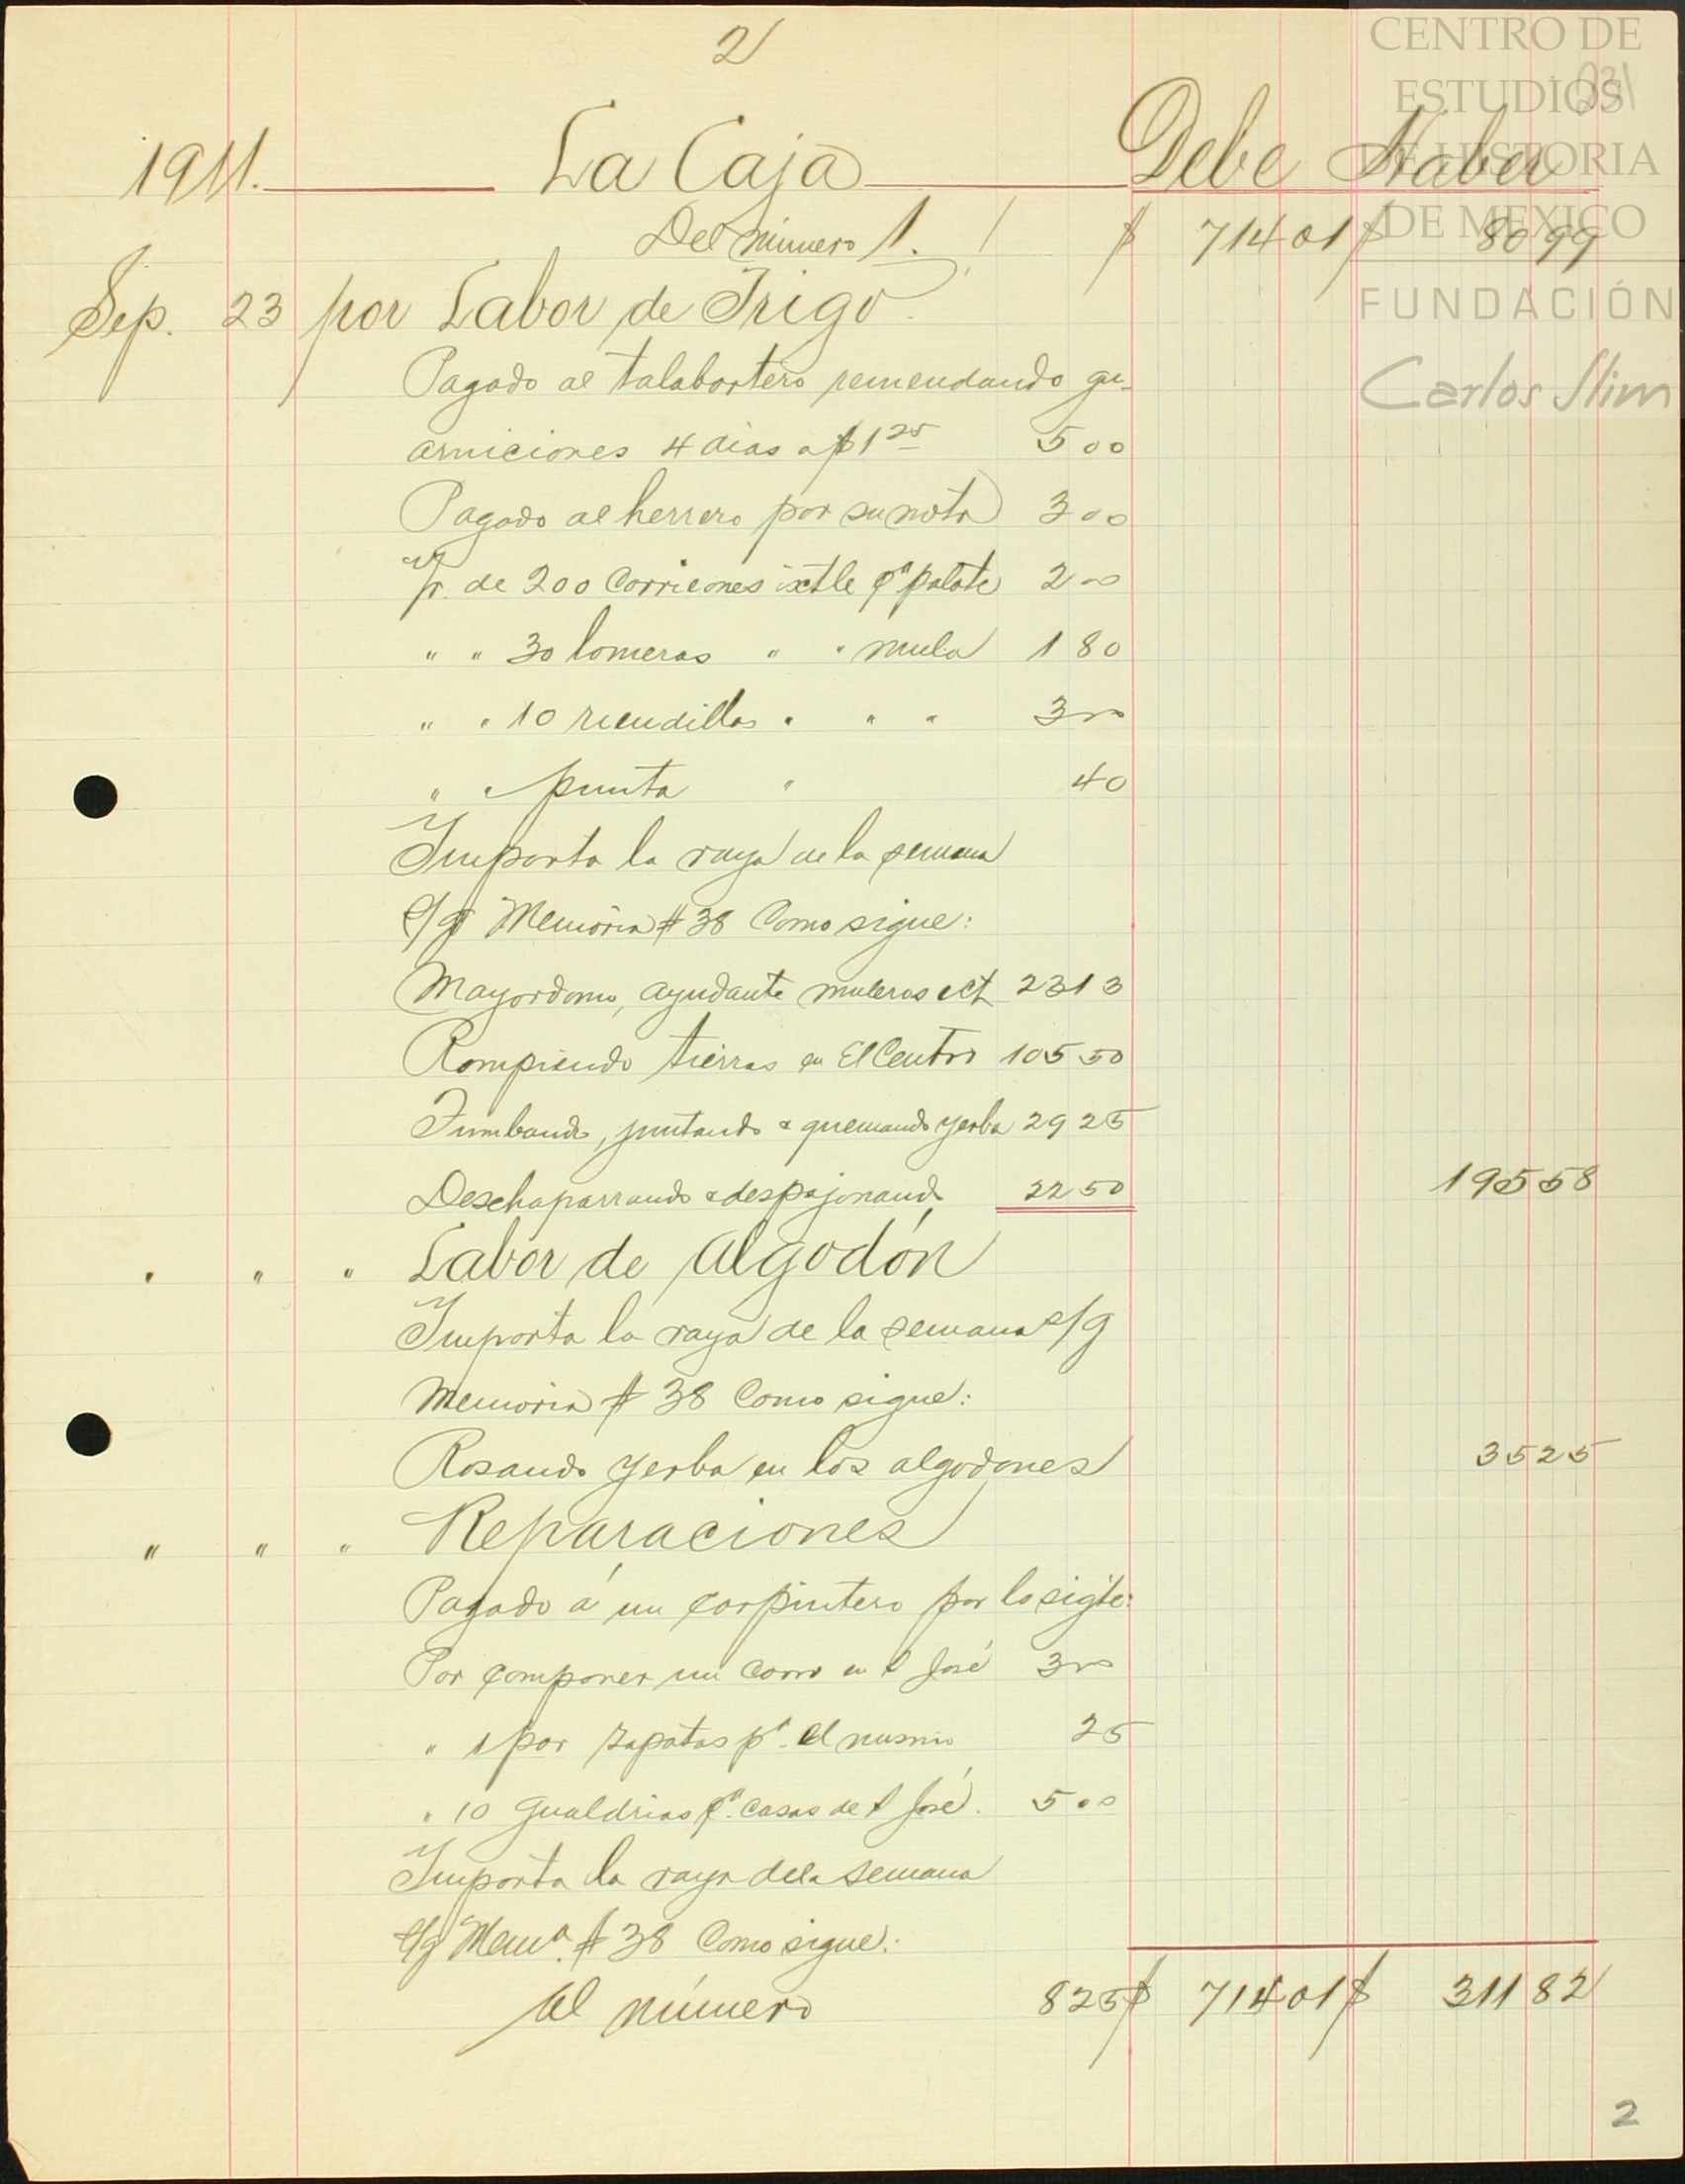 2
CENTRO DE
ESTUDIOS
DE HISTORIA
DE MEXICO
FUNDACIÓN
Carlos Slim
231
1911. La Caja Debe Haber
Del número 1. $ 714 01 $ 80 99
Sep. 23 por Labor de Trigo.
Pagado al talabartero remendando gu-
arniciones 4 dias a $ 1 25 5 00
Pagado al herrero por su nota 3 00
pr. de 200 Corriones ixtle pa palote 2 00
" " 30 lomeras " " mula 1 80
" " 10 riendillas " " " 3 00
" " punta " 40
Importa la raya de la semana
s/g Memoria # 38 Como sigue:
Mayordomo, ayudante muleros ect 23 13
Rompiendo tierras en El Centro 105 50
Tumbando, juntando & quemando yerba 29 25
Deschaparrando & despajonando 22 50 195 58
" " " Labor de Algodón
Importa la raya de la semana s/g
Memoria # 38 Como sigue:
Rosando yerba en los algodones 35 25
" " " Reparaciones
Pagado á un carpintero por lo sigte:
Por componer un carro en S José 3 00
" 1 par zapatas pa. el mismo 25
" 10 Gualdrias pa. casas de S José. 5 00
Importa la raya de la semana
s/g Mema. # 38 Como sigue:
Al número 8 25 $ 714 01 $ 311 82
2